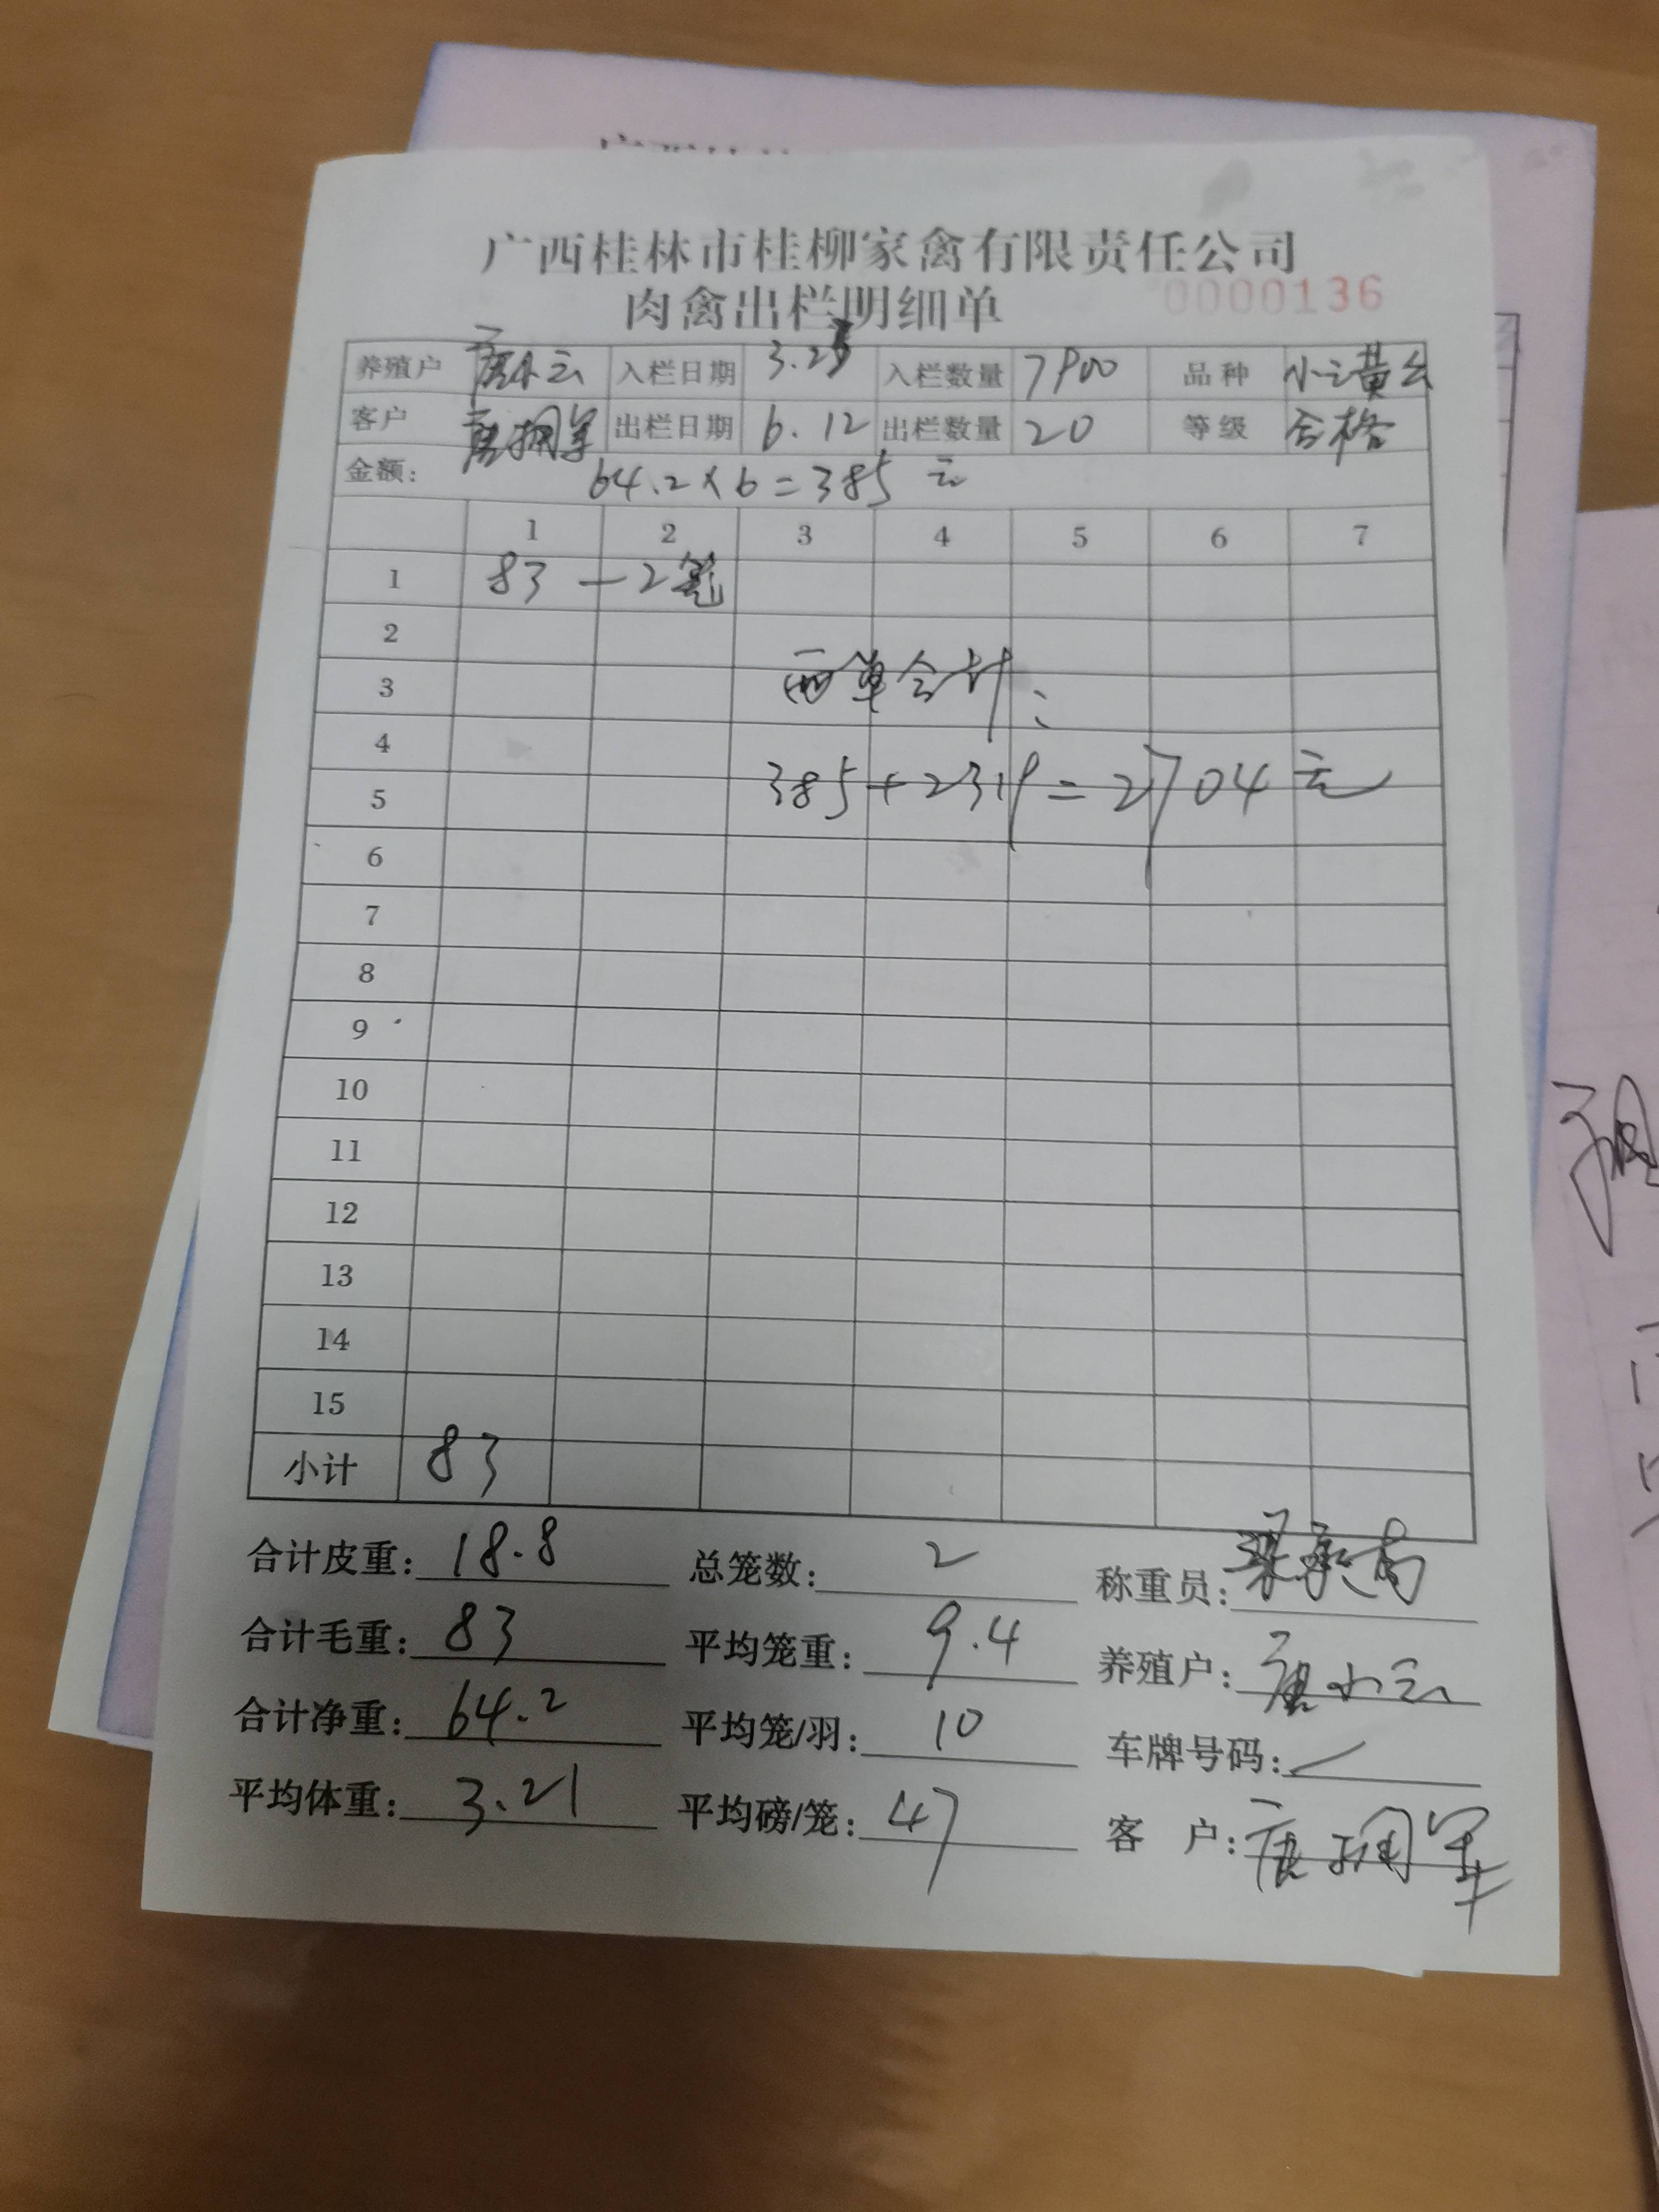 广西桂林市桂柳家禽有限责任公司
肉禽出栏明细单 0000136
养殖户 唐小云 入栏日期 3.25 入栏数量 7900 品种 小二黄公
客户 唐拥军 出栏日期 6.12 出栏数量 20 等级 合格
金额: 64.2×6=385元
1 2 3 4 5 6 7
1 83 — 2笼
2
两单合计:
3
4
385+2319=2704元
5
6
7
8
9
10
11
12
13
14
15
小计 83
合计皮重: 18.8 总笼数: 2 称重员:
合计毛重: 83 平均笼重: 9.4 养殖户: 唐小云
合计净重: 64.2 平均笼/羽: 10 车牌号码: /
平均体重: 3.21 平均磅/笼: 47 客 户: 唐拥军